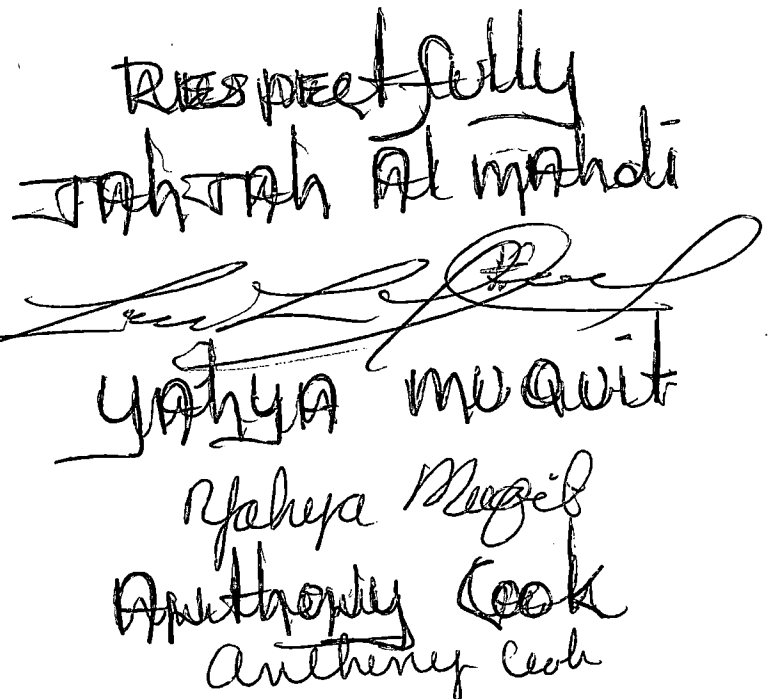 Respectfully
JAhJAh Al mAhdi
YAhyA muQuit
Yahya Muqit
Anthony Cook
Anthony Cook